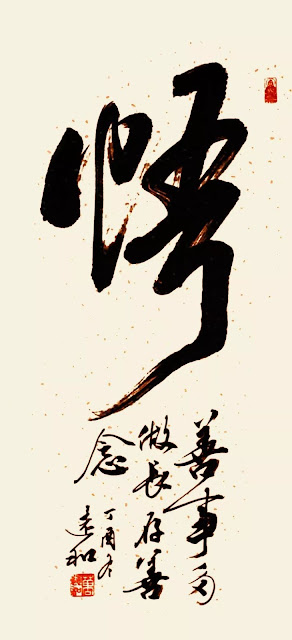 悟
善事多
做長存善
念
丁酉冬
遠和